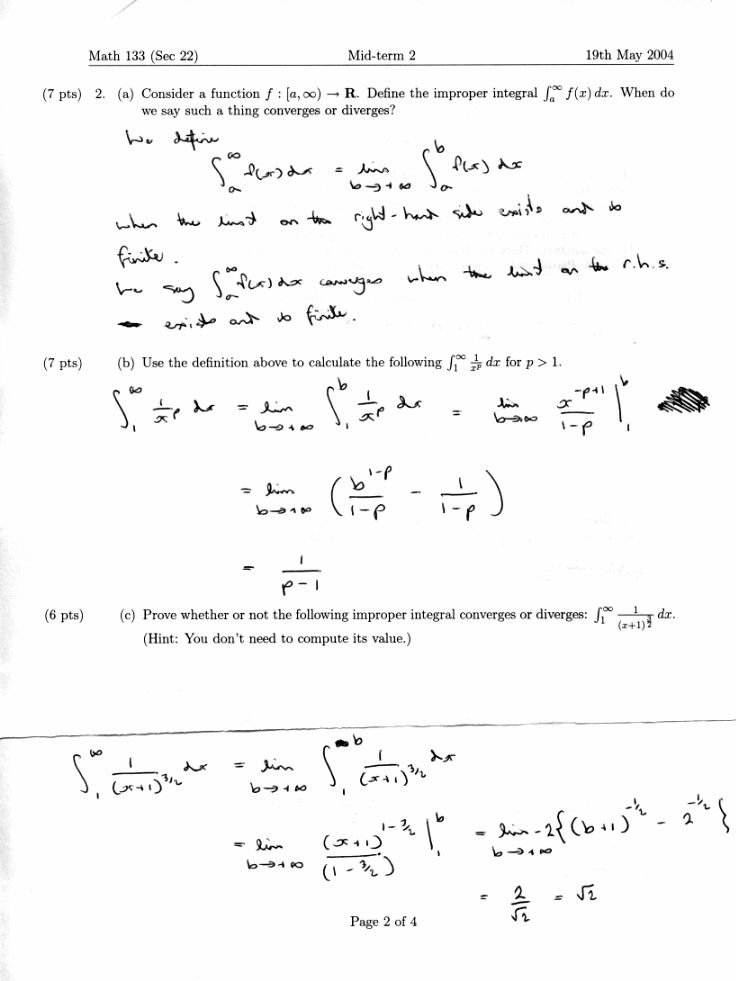 Math 133 (Sec 22) Mid-term 2 19th May 2004
(7 pts) 2. (a) Consider a function f : [a, ∞) → R. Define the improper integral ∫_a^∞ f(x) dx. When do
we say such a thing converges or diverges?
We define
∫_a^∞ f(x) dx = lim_{b→+∞} ∫_a^b f(x) dx
when the limit on the right-hand side exists and is
finite.
We say ∫_a^∞ f(x) dx converges when the limit on the r.h.s.
exists and is finite.
(7 pts) (b) Use the definition above to calculate the following ∫_1^∞ 1/x^p dx for p > 1.
∫_1^∞ 1/x^p dx = lim_{b→+∞} ∫_1^b 1/x^p dx = lim_{b→∞} x^{-p+1}/(1-p) |_1^b
= lim_{b→+∞} (b^{1-p}/(1-p) - 1/(1-p))
= 1/(p-1)
(6 pts) (c) Prove whether or not the following improper integral converges or diverges: ∫_1^∞ 1/(x+1)^{3/2} dx.
(Hint: You don't need to compute its value.)
∫_1^∞ 1/(x+1)^{3/2} dx = lim_{b→+∞} ∫_1^b 1/(x+1)^{3/2} dx
= lim_{b→+∞} (x+1)^{1-3/2}/(1-3/2) |_1^b = lim_{b→+∞} -2{(b+1)^{-1/2} - 2^{-1/2}}
= 2/√2 = √2
Page 2 of 4